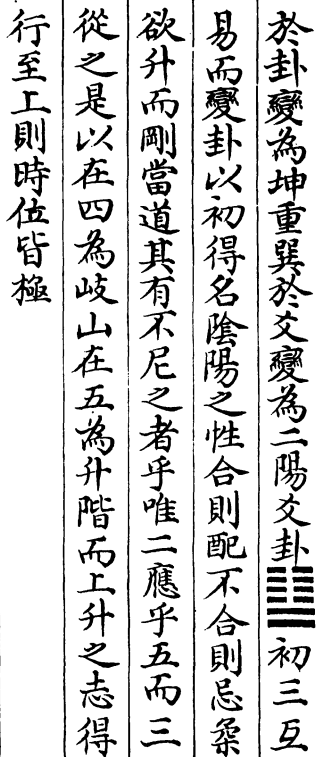 於卦變為坤重巽於爻變為二陽爻卦䷭初三互
易而變卦以初得名陰陽之性合則配不合則忌柔
欲升而剛當道其有不尼之者乎唯二應乎五而三
從之是以在四為岐山在五為升階而上升之志得
行至上則時位皆極